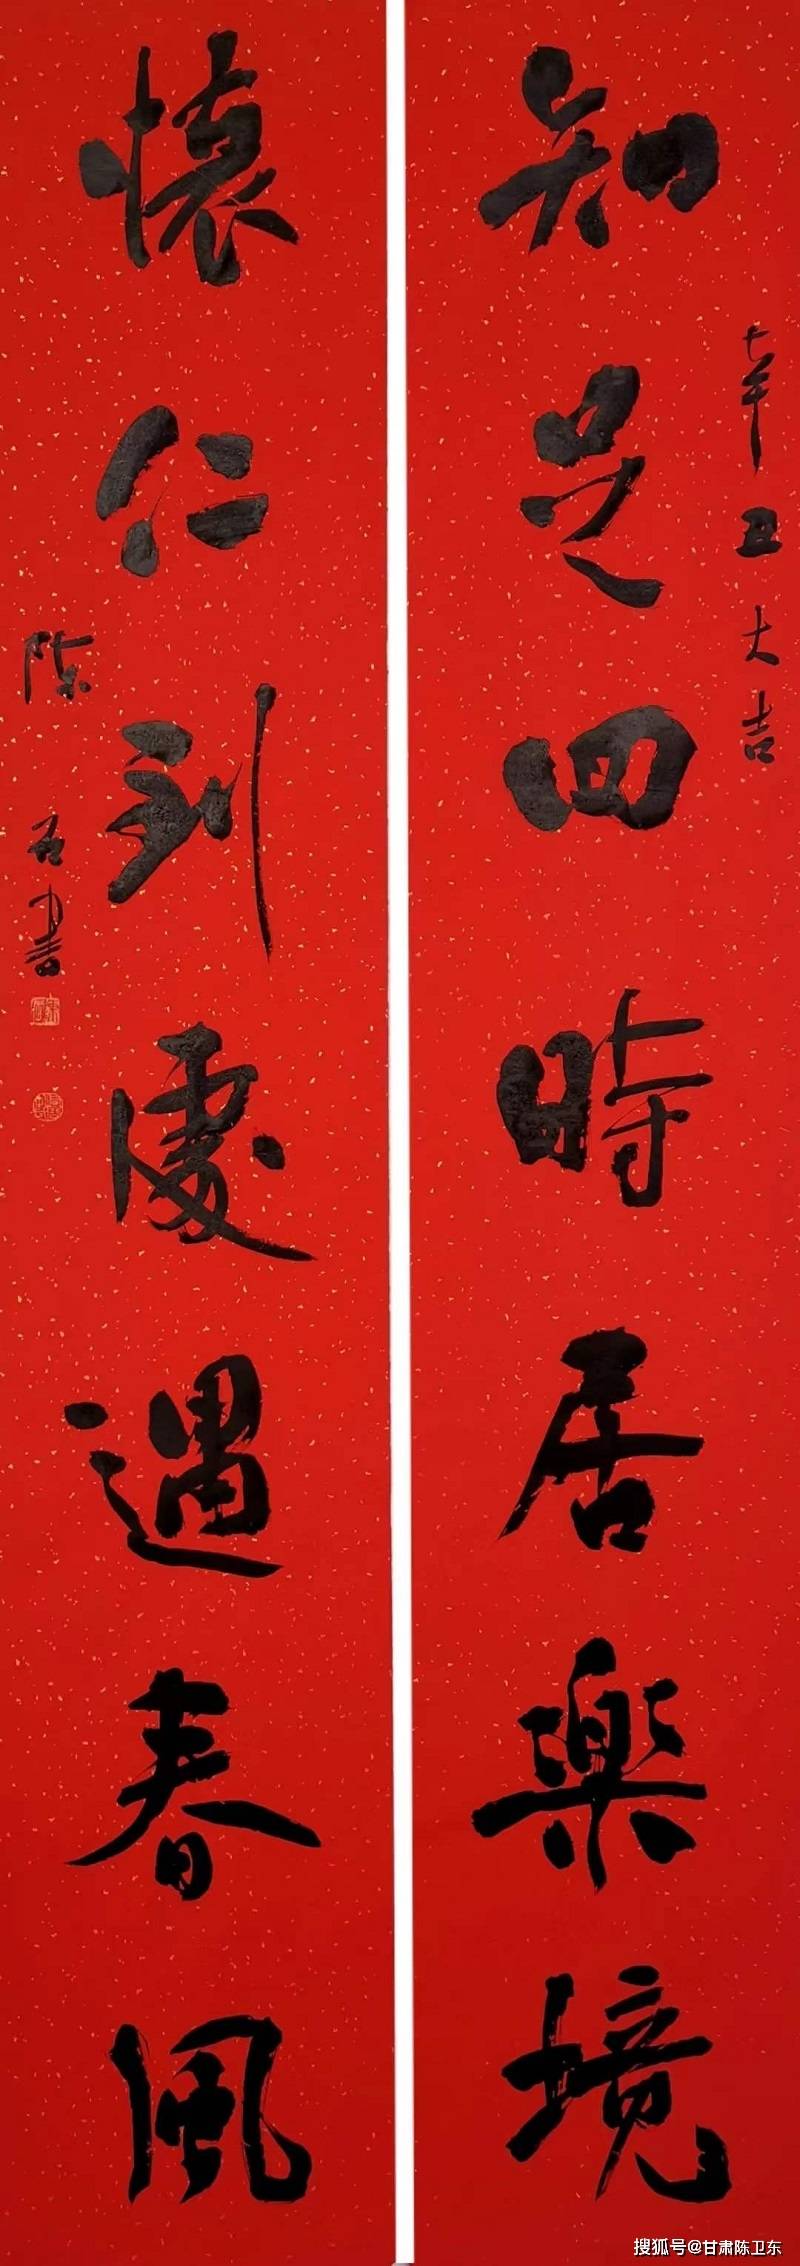 知足四時居樂境
辛丑大吉
懷仁到處遇春風
陈
书
搜狐号@甘肃陈卫东